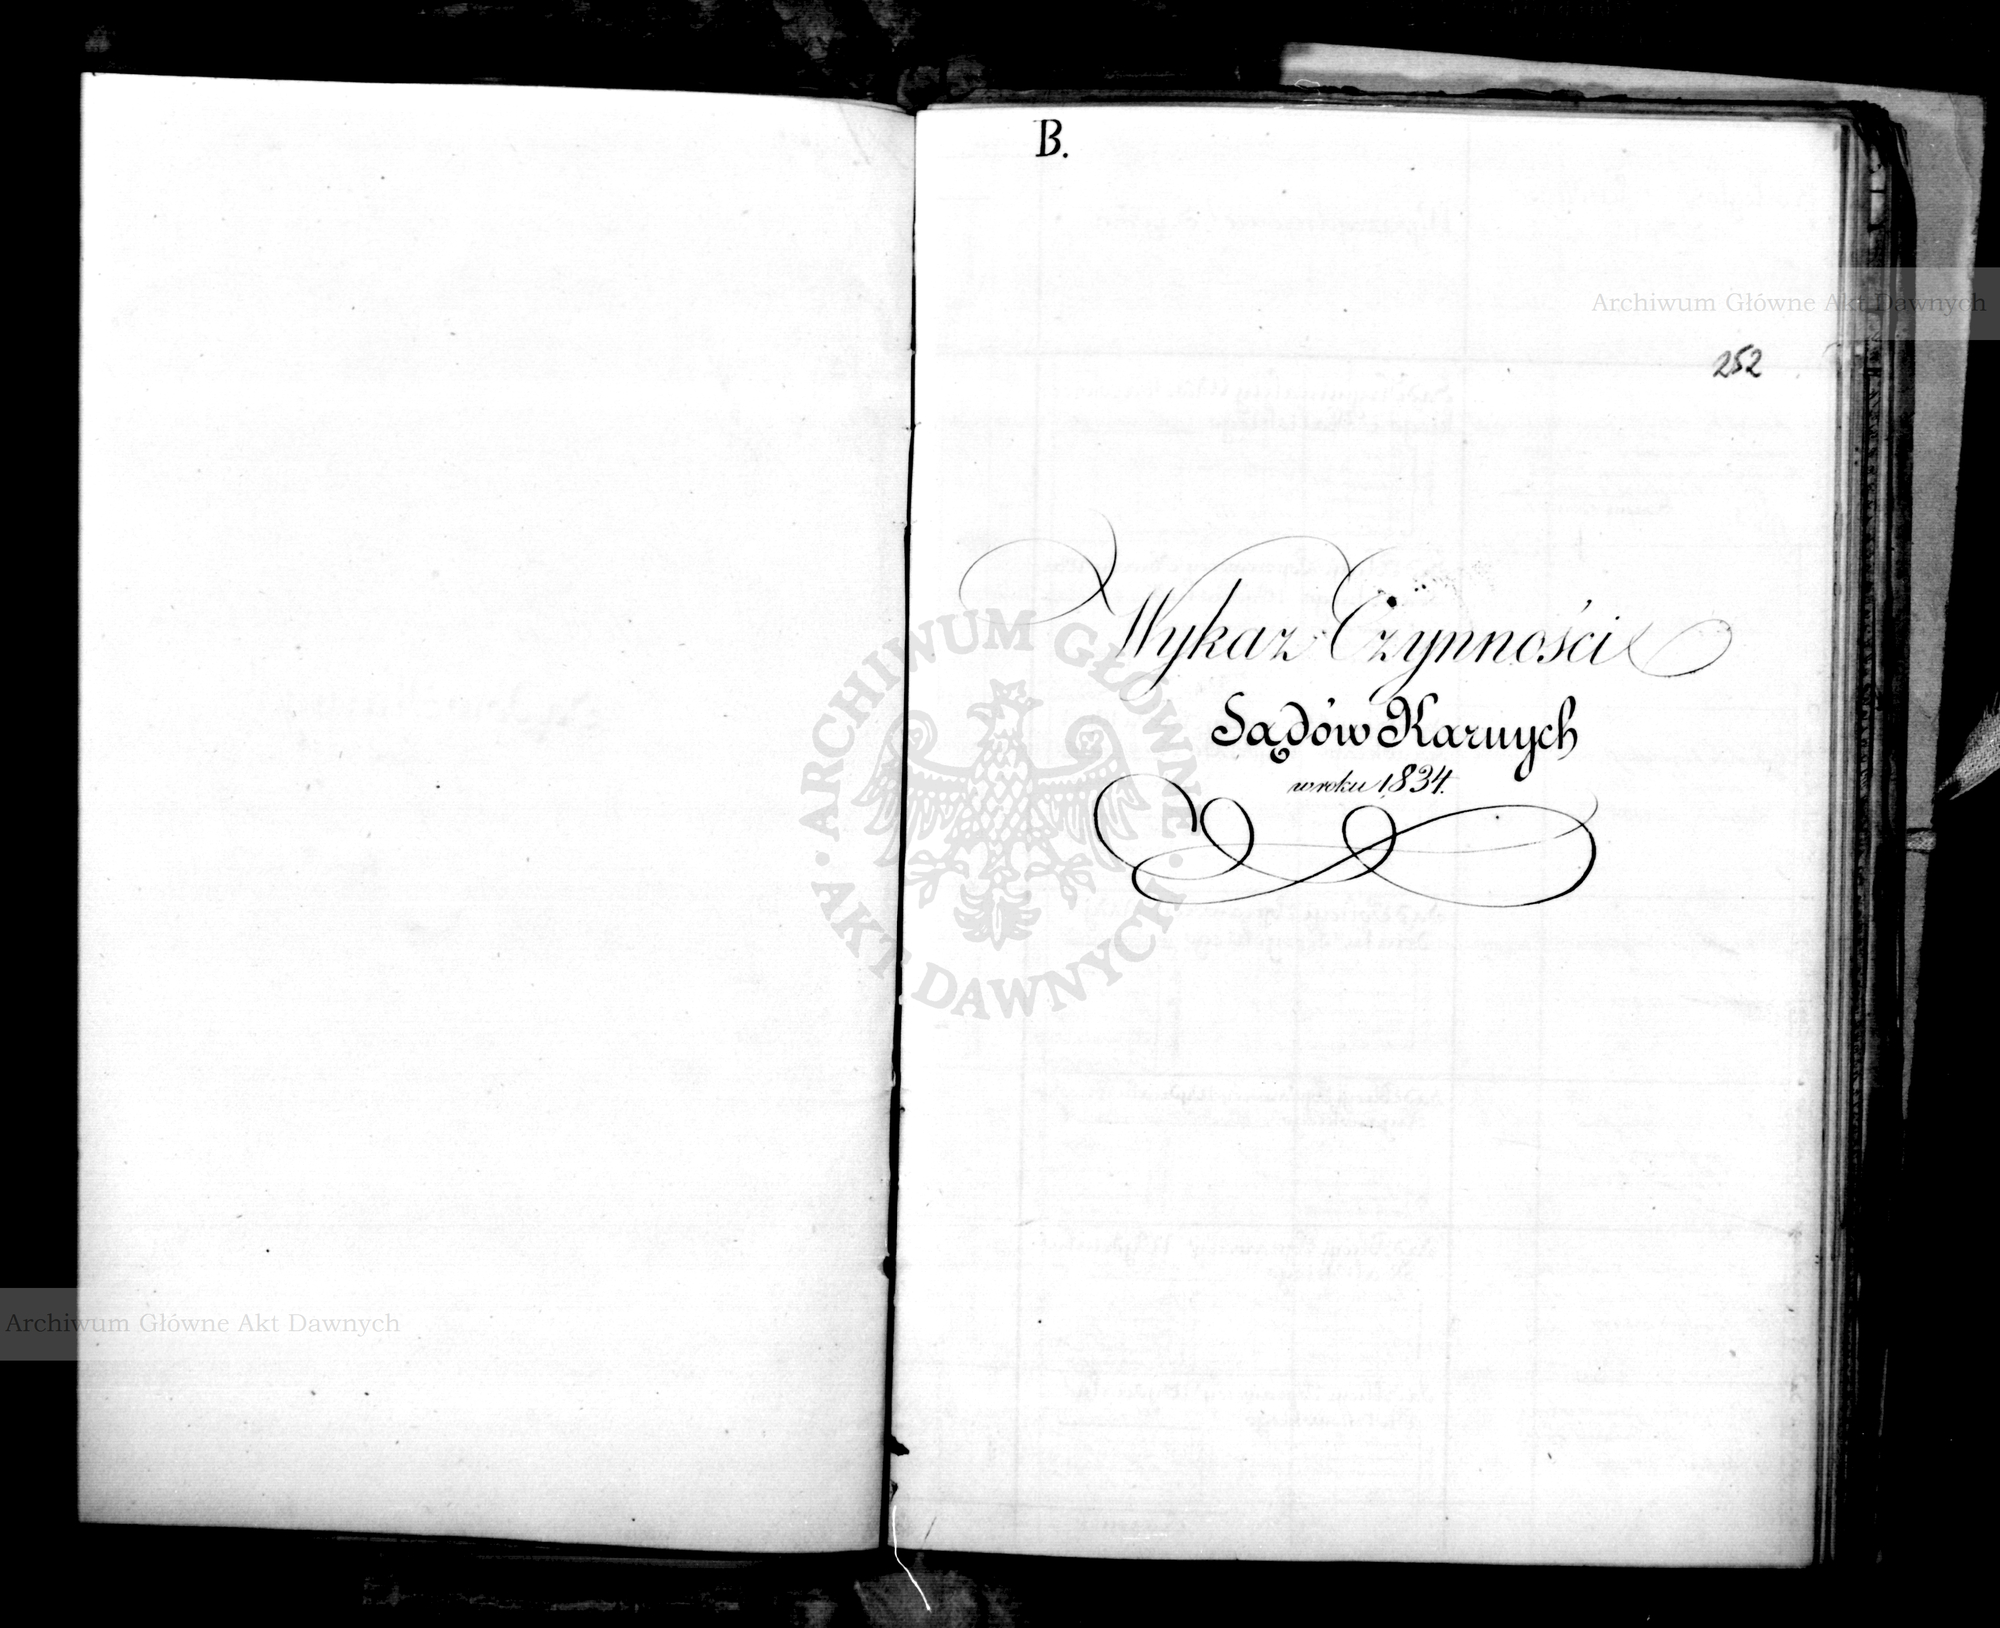 B.
Archiwum Główne Akt Dawnych
252
Wykaz Czynności
Sądów Karnych
w roku 1834.
ARCHIWUM GŁÓWNE
AKT DAWNYCH
Archiwum Główne Akt Dawnych